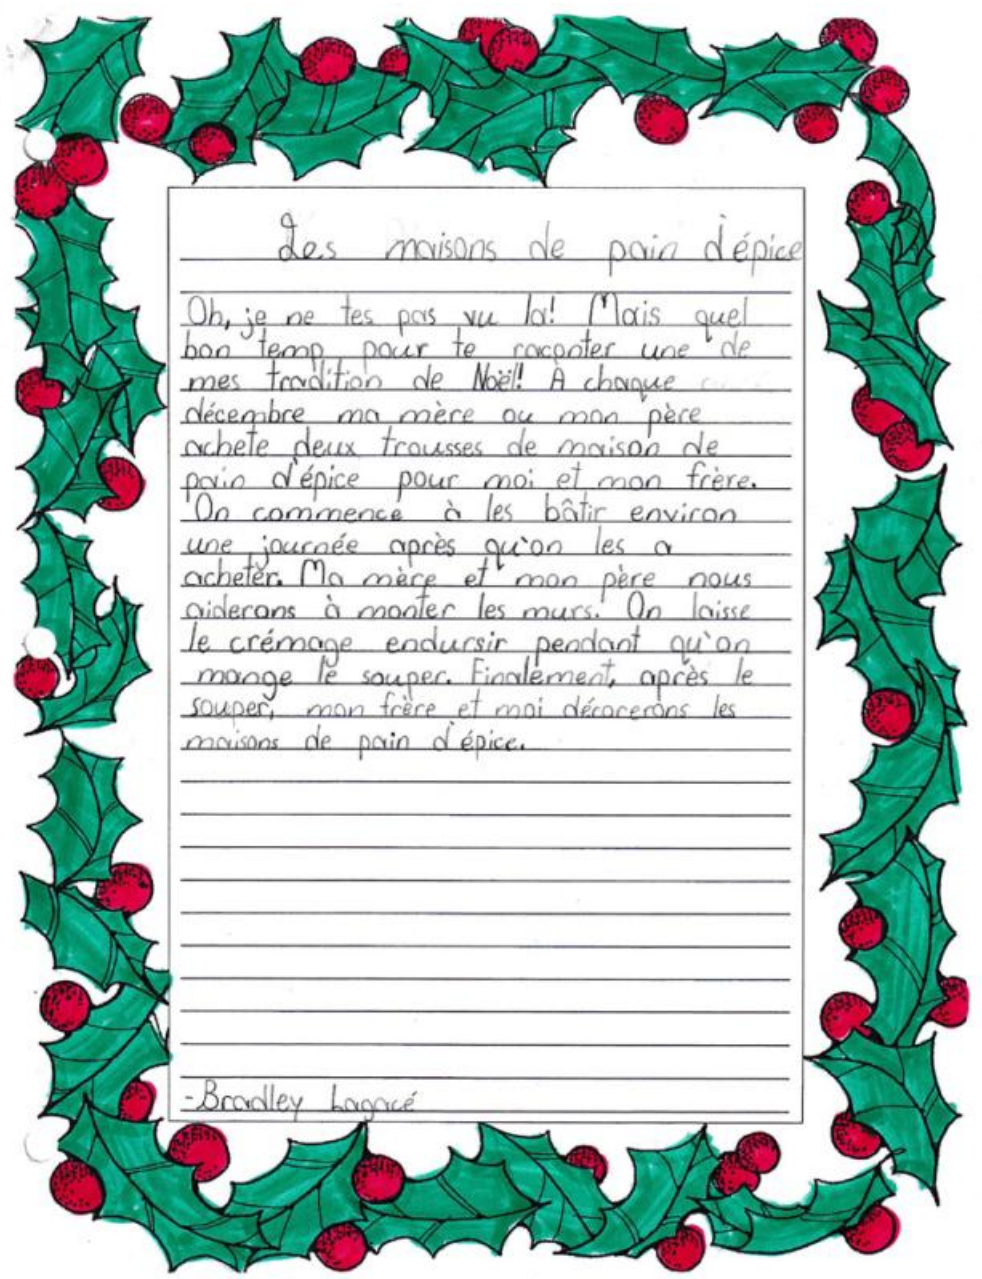 Les maisons de pain d'épice
Oh, je ne tes pas vu la! Mais quel
bon temp pour te raconter une de
mes tradition de Noël! A chaque
décembre ma mère ou mon père
achete deux trousses de maison de
pain d'épice pour moi et mon frère.
On commence à les bâtir environ
une journée après qu'on les a
acheter. Ma mère et mon père nous
aiderons à monter les murs. On laisse
le crémage endursir pendant qu'on
mange le souper. Finalement, après le
souper, mon frère et moi décorerons les
maisons de pain d'épice.
-Bradley Lagacé